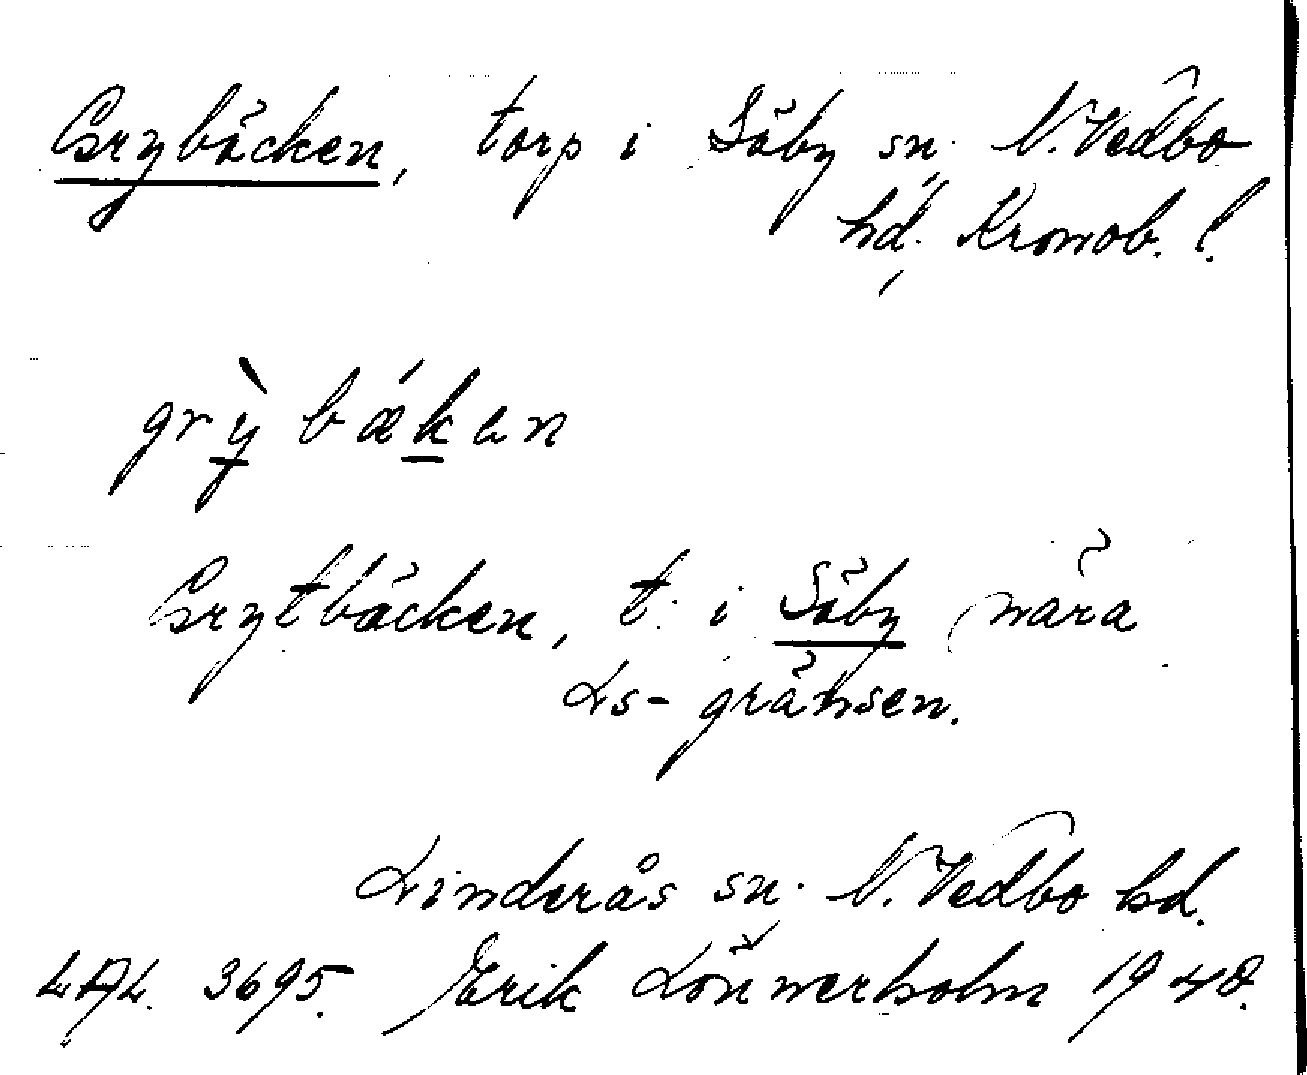 Grybäcken, torp i Säby sn. N. Vedbo
hd. Kronob. l.
grỳ bǽkan
Grytbäcken, t. i Säby nära
Ls-gränsen.
Linderås sn. N. Vedbo hd.
LAL. 3695. Erik Lönnerholm 1940.